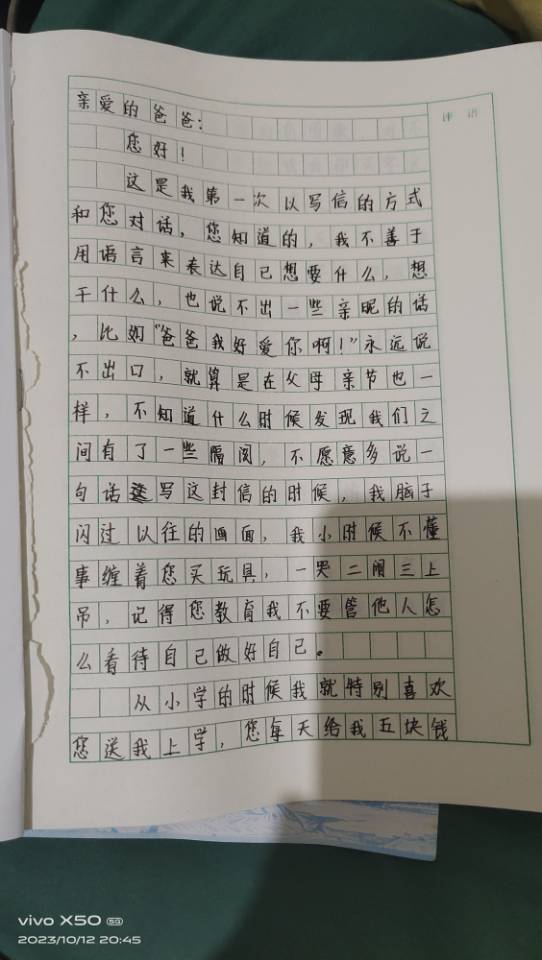 评 语
亲爱的爸爸：
您好！
这是我第一次以写信的方式
和您对话，您知道的，我不善于
用语言来表达自己想要什么，想
干什么，也说不出一些亲昵的话
，比如"爸爸我好爱你啊！"永远说
不出口，就算是在父母亲节也一
样，不知道什么时候发现我们之
间有了一些隔阂，不愿意多说一
句话写这封信的时候，我脑子
闪过以往的画面，我小时候不懂
事缠着您买玩具，一哭二闹三上
吊，记得您教育我不要管他人怎
么看待自己做好自己。
从小学的时候我就特别喜欢
您送我上学，您每天给我五块钱
vivo X50 5G
2023/10/12 20:45